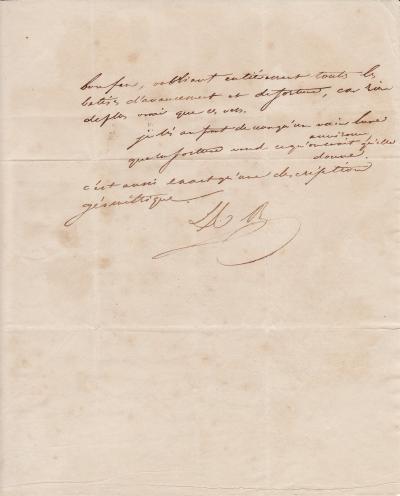 bon feu, oubliant entièrement toutes les
betises d'avancement et de fortune, car rien
de plus vrai que ces vers.
je lis au front de ceux qu'un vain luxe
environne
que la fortune vend ce qu'on croit qu'elle
donne.
c'est aussi exact qu'une description
géométrique.